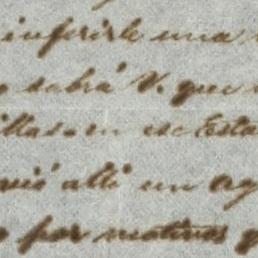 inferirle una
sabrá V. que
en ese Esta
allá un Ag
por motivos